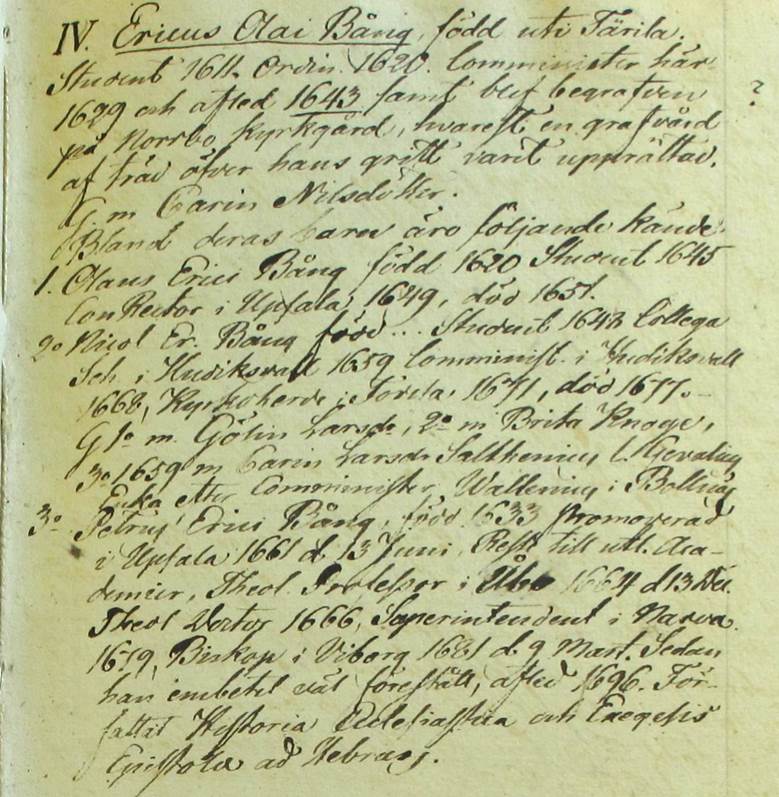 IV. Ericus Olai Bång, född uti Färila.
Student 1611. Ordin. 1620. Comminister här
1629 och afled 1643 samt blef begrafven
på Norrbo Kyrkgård, hvarest en grafvård
af träd öfver hans grift varit upprättad.
G. m Carin Nilsdotter.
Bland deras barn äro följande kände.
1. Olaus Erici Bång född 1620 Student 1645
ConRector i Upsala 1649, död 1651.
2o Nicol Er. Bång född ... Student 1643 Collega
Sch. i Hudiksvall 1659 Comminist. i Hudiksvall
1668, Kyrkoherde i 1671, död 1677.
G 1o m. Gölin Larsdr, 2o m Brita Knoge,
3o 1659 m Carin Larsdr Salthenius
Enka efter Comminister Wallenius i Bollnäs
3o Petrus Erici Bång, född 1633 Promoverad
i Upsala 1661 d. 13 Juni, Rest till utl. Aca-
demier, Theol. Professor i Åbo 1664 d 13 Dec.
Theol Doctor 1666, Superintendent i Narva
1679, Biskop i Viborg 1681 d. 9 Mart. Sedan
han embetet väl förestått, afled 1696. För-
fattat Historia Eclesiastica och Exegesis
Epistola ad Hebræos.
?